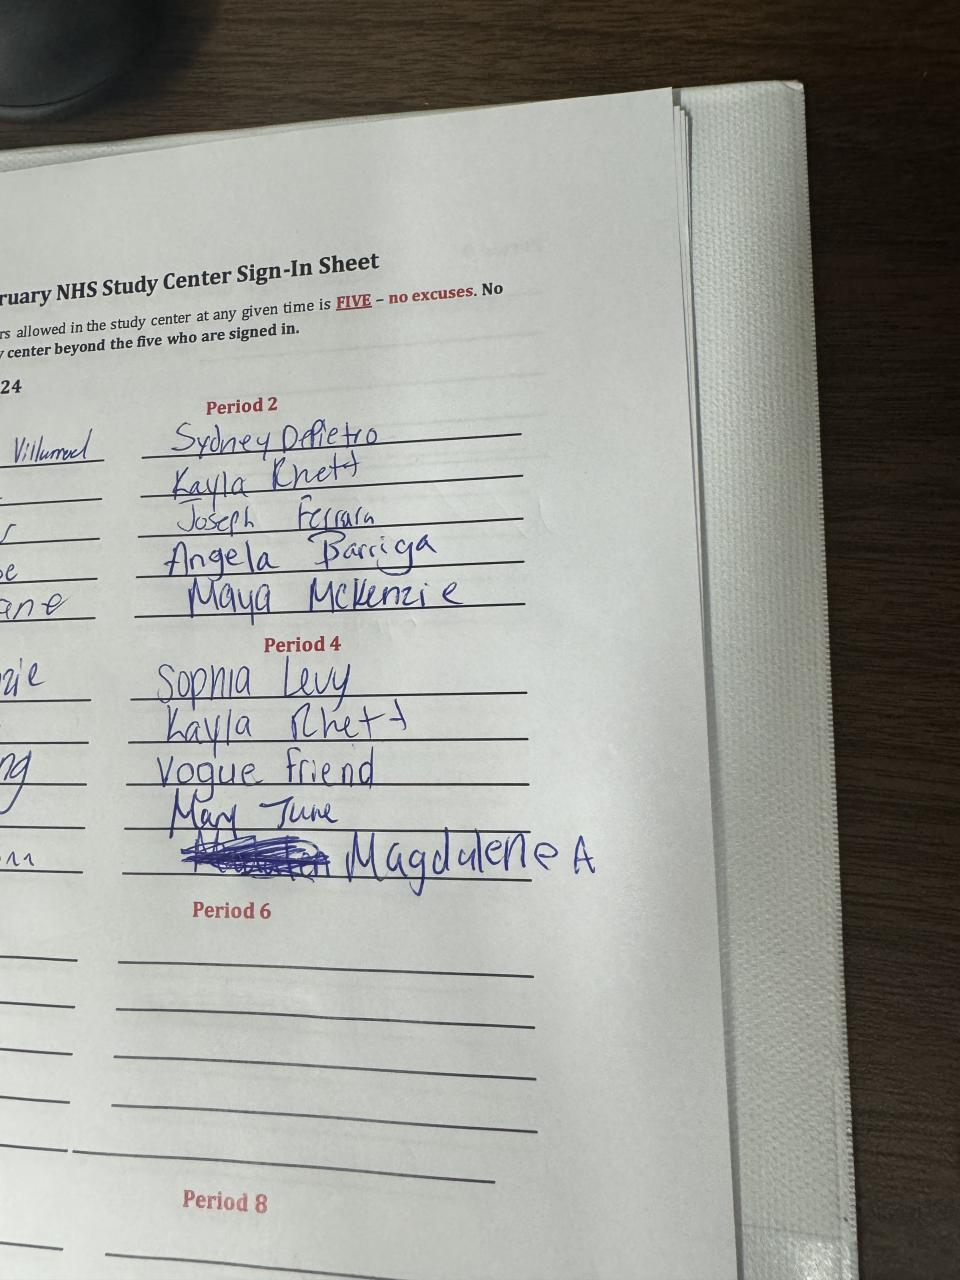 ruary NHS Study Center Sign-In Sheet
rs allowed in the study center at any given time is FIVE – no excuses. No
y center beyond the five who are signed in.
24
Period 2
Villarreal Sydney DePietro
Kayla Rhett
Joseph Ferrara
Angela Barriga
ane Maya McKenzie
Period 4
zie Sophia Levy
Kayla Rhett
ng Vogue friend
May June
nn Magdalene A
Period 6
Period 8